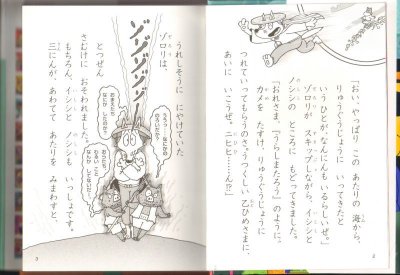 「おい、やっぱり この あたりの 海から、
りゅうぐうじょうに いってきたと
いうひとが、なんにんも いるらしいぜ。」
ゾロリが スキップしながら、イシシと
ノシシの ところに もどってきました。
「おれさま、『うらしまたろう』のように、
カメを たすけ、りゅうぐうじょうに
つれていってもらうのさ。うつくしい 乙ひめさまに、
あいに いこうぜ。ニヒヒ……ん!?」
2
うれしそうに にやけていた
ゾロリは、
ゾゾゾゾゾーッ
とつぜん
さむけに おそわれました。
もちろん、イシシと ノシシも いっしょです。
三にんが、あわてて あたりを
みまわすと、
3